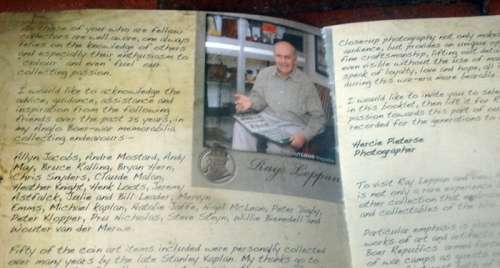 As those of you who are fellow
collectors are well aware, one always
relies on the knowledge of others
and especially their enthusiasm to
colour and even fuel our
collecting passion.
I would like to acknowledge the
advice, guidance, assistance and
inspiration from the following
friends over the past 25 years, in
my Anglo Boer-war memorabilia
collecting endeavours:-
Allyn Jacobs, Andre Mostard, Andy
May, Bruce Kalling, Bryan Hern,
Chris Snyders, Claude Malan,
Heather Knight, Henk Loots, Jeremy
Astfalck, Julie and Bill Lander, Mervyn
Emms, Michael Kaplan, Natalie Jaffe, Nigel McLean, Peter
Peter Klopper, Pru Nicholas, Steve Steyn, Willie Barendell and
Wouter van der Merwe.
Fifty of the coin art items included were personally collected
over many years by the late Stanley Kaplan. My thanks go to
Ray Leppan
close-up photography not only makes
audience, but provides an unique
fine craftsmanship, lifting out
even visible without the use of
speak of loyalty, love and hope, all
during this war-more bearable.
I would like to invite you to
in this booklet, then let it
passion towards this part of
recorded for the generations to
Hercie Pieterse
Photographer
To visit Ray Leppan and
is not only a rare experience
other collection that
and collectables of the
Particular emphasis is
works of art and
Boer Republics
of war camps as